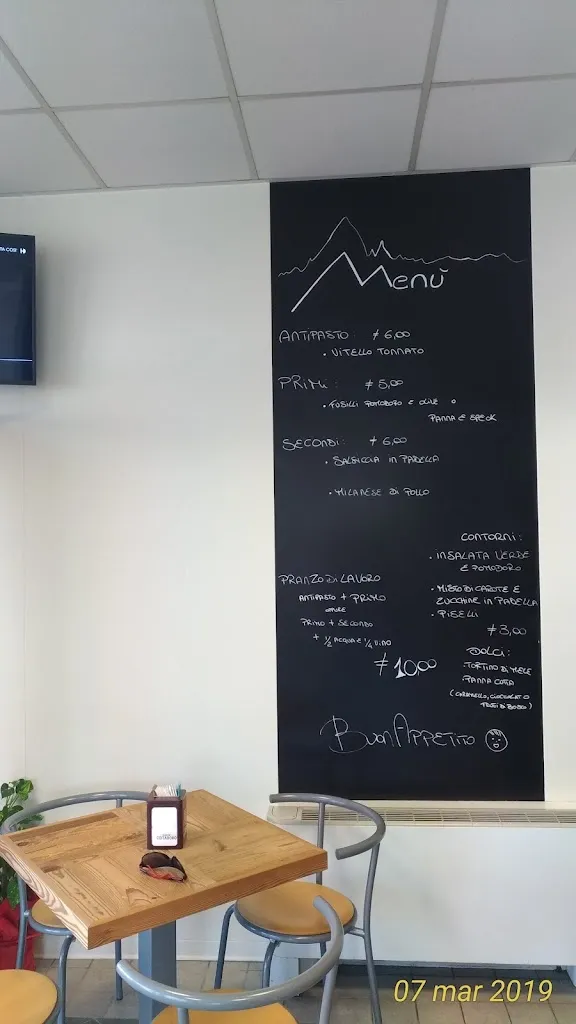 Menù
ANTIPASTO: € 6,00
• VITELLO TONNATO
PRIMI: € 5,00
• FUSILLI POMODORO E OLIVE O
PANNA E SPECK
SECONDI: € 6,00
• SALSICCIA IN PADELLA
• MILANESE DI POLLO
CONTORNI:
• INSALATA VERDE
E POMODORO
• MISTO DI CAROTE E
ZUCCHINE IN PADELLA
• PISELLI
€ 3,00
PRANZO DI LAVORO
ANTIPASTO + PRIMO
OPPURE
PRIMO + SECONDO
+ ½ ACQUA E ¼ VINO
€ 10,00
DOLCI:
• TORTINO DI MELE
• PANNA COTTA
(CARAMELLO, CIOCCOLATO O
FRUTTI DI BOSCO)
BUON APPETITO
07 mar 2019